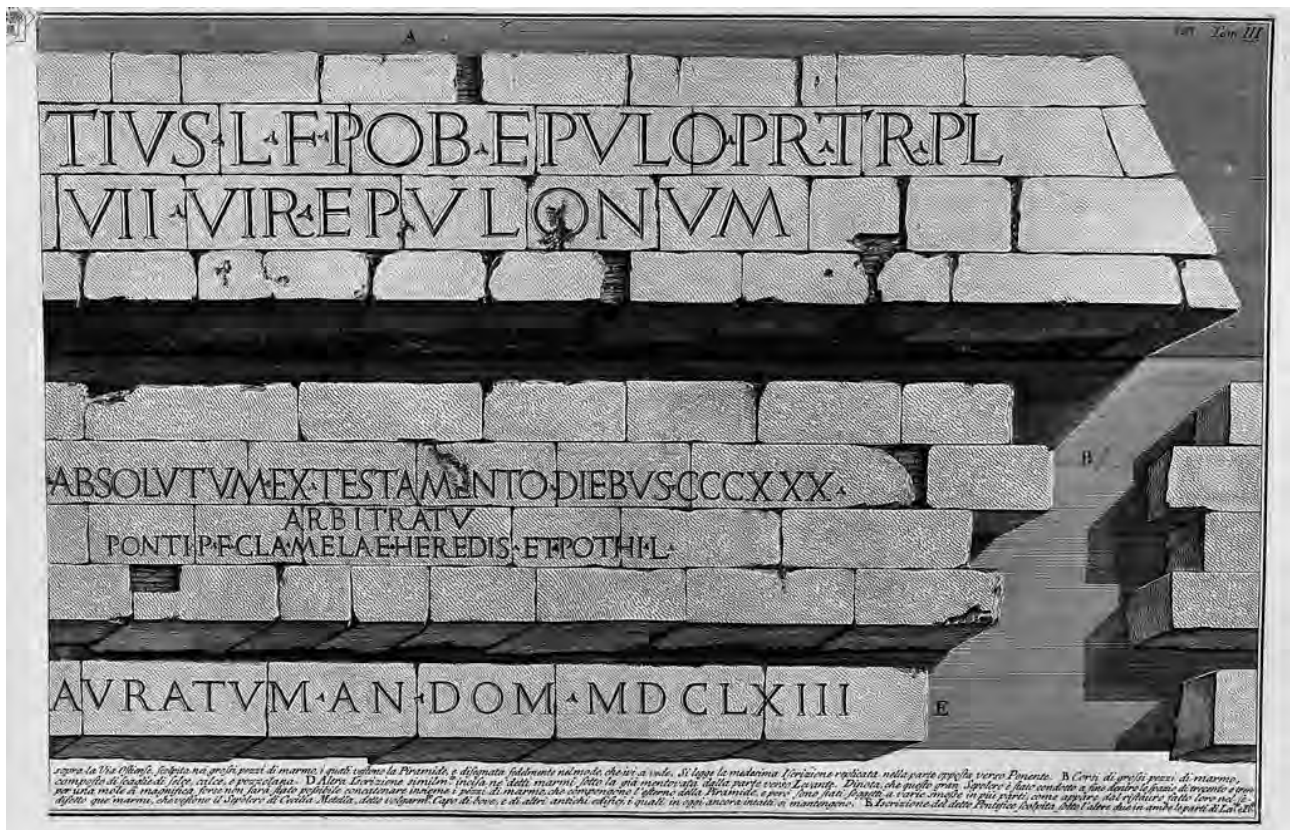 A
Tom III
TIVS·L·F·POB·EPVLO·PR·TR·PL
VII·VIR·EPVLONVM
B
·ABSOLVTVM·EX·TESTAMENTO·DIEBVS·CCCXXX·
ARBITRATV
PONTI·P·F·CLA·MELAE·HEREDIS·ET·POTHI·L·
AVRATVM·AN·DOM·MDCLXIII
E
sopra la Via Ostiense, scolpita nei grossi pezzi di marmo, i quali vestono la Piramide, e disegnata fedelmente nel modo, che ivi si vede. Si legge la medesima Iscrizione replicata nella parte opposta verso Ponente. B Corsi di grossi pezzi di marmo,
composto di scaglie di selce, calce, e pozzolana. D Altra Iscrizione incisa ne' detti marmi sotto la già mentovata dalla parte verso Levante. Dinota, che questo gran Sepolcro è stato condotto a fine dentro lo spazio di trecento e
per una mole sì magnifica, forse non sarà stato possibile concatenare insieme i pezzi di marmo, che compongono l'esterno della Piramide, e però sono stati soggetti a varie smosse in più parti, come appare dal ristauro fatto loro nel
difetto que' marmi, che vestono il Sepolcro di Cecilia Metella, detto volgarm. Capo di bove, e di altri antichi edifici, i quali in oggi ancora intatti si mantengono. E Iscrizione del detto Pontefice scolpita sotto l'altre due in ambe le parti di